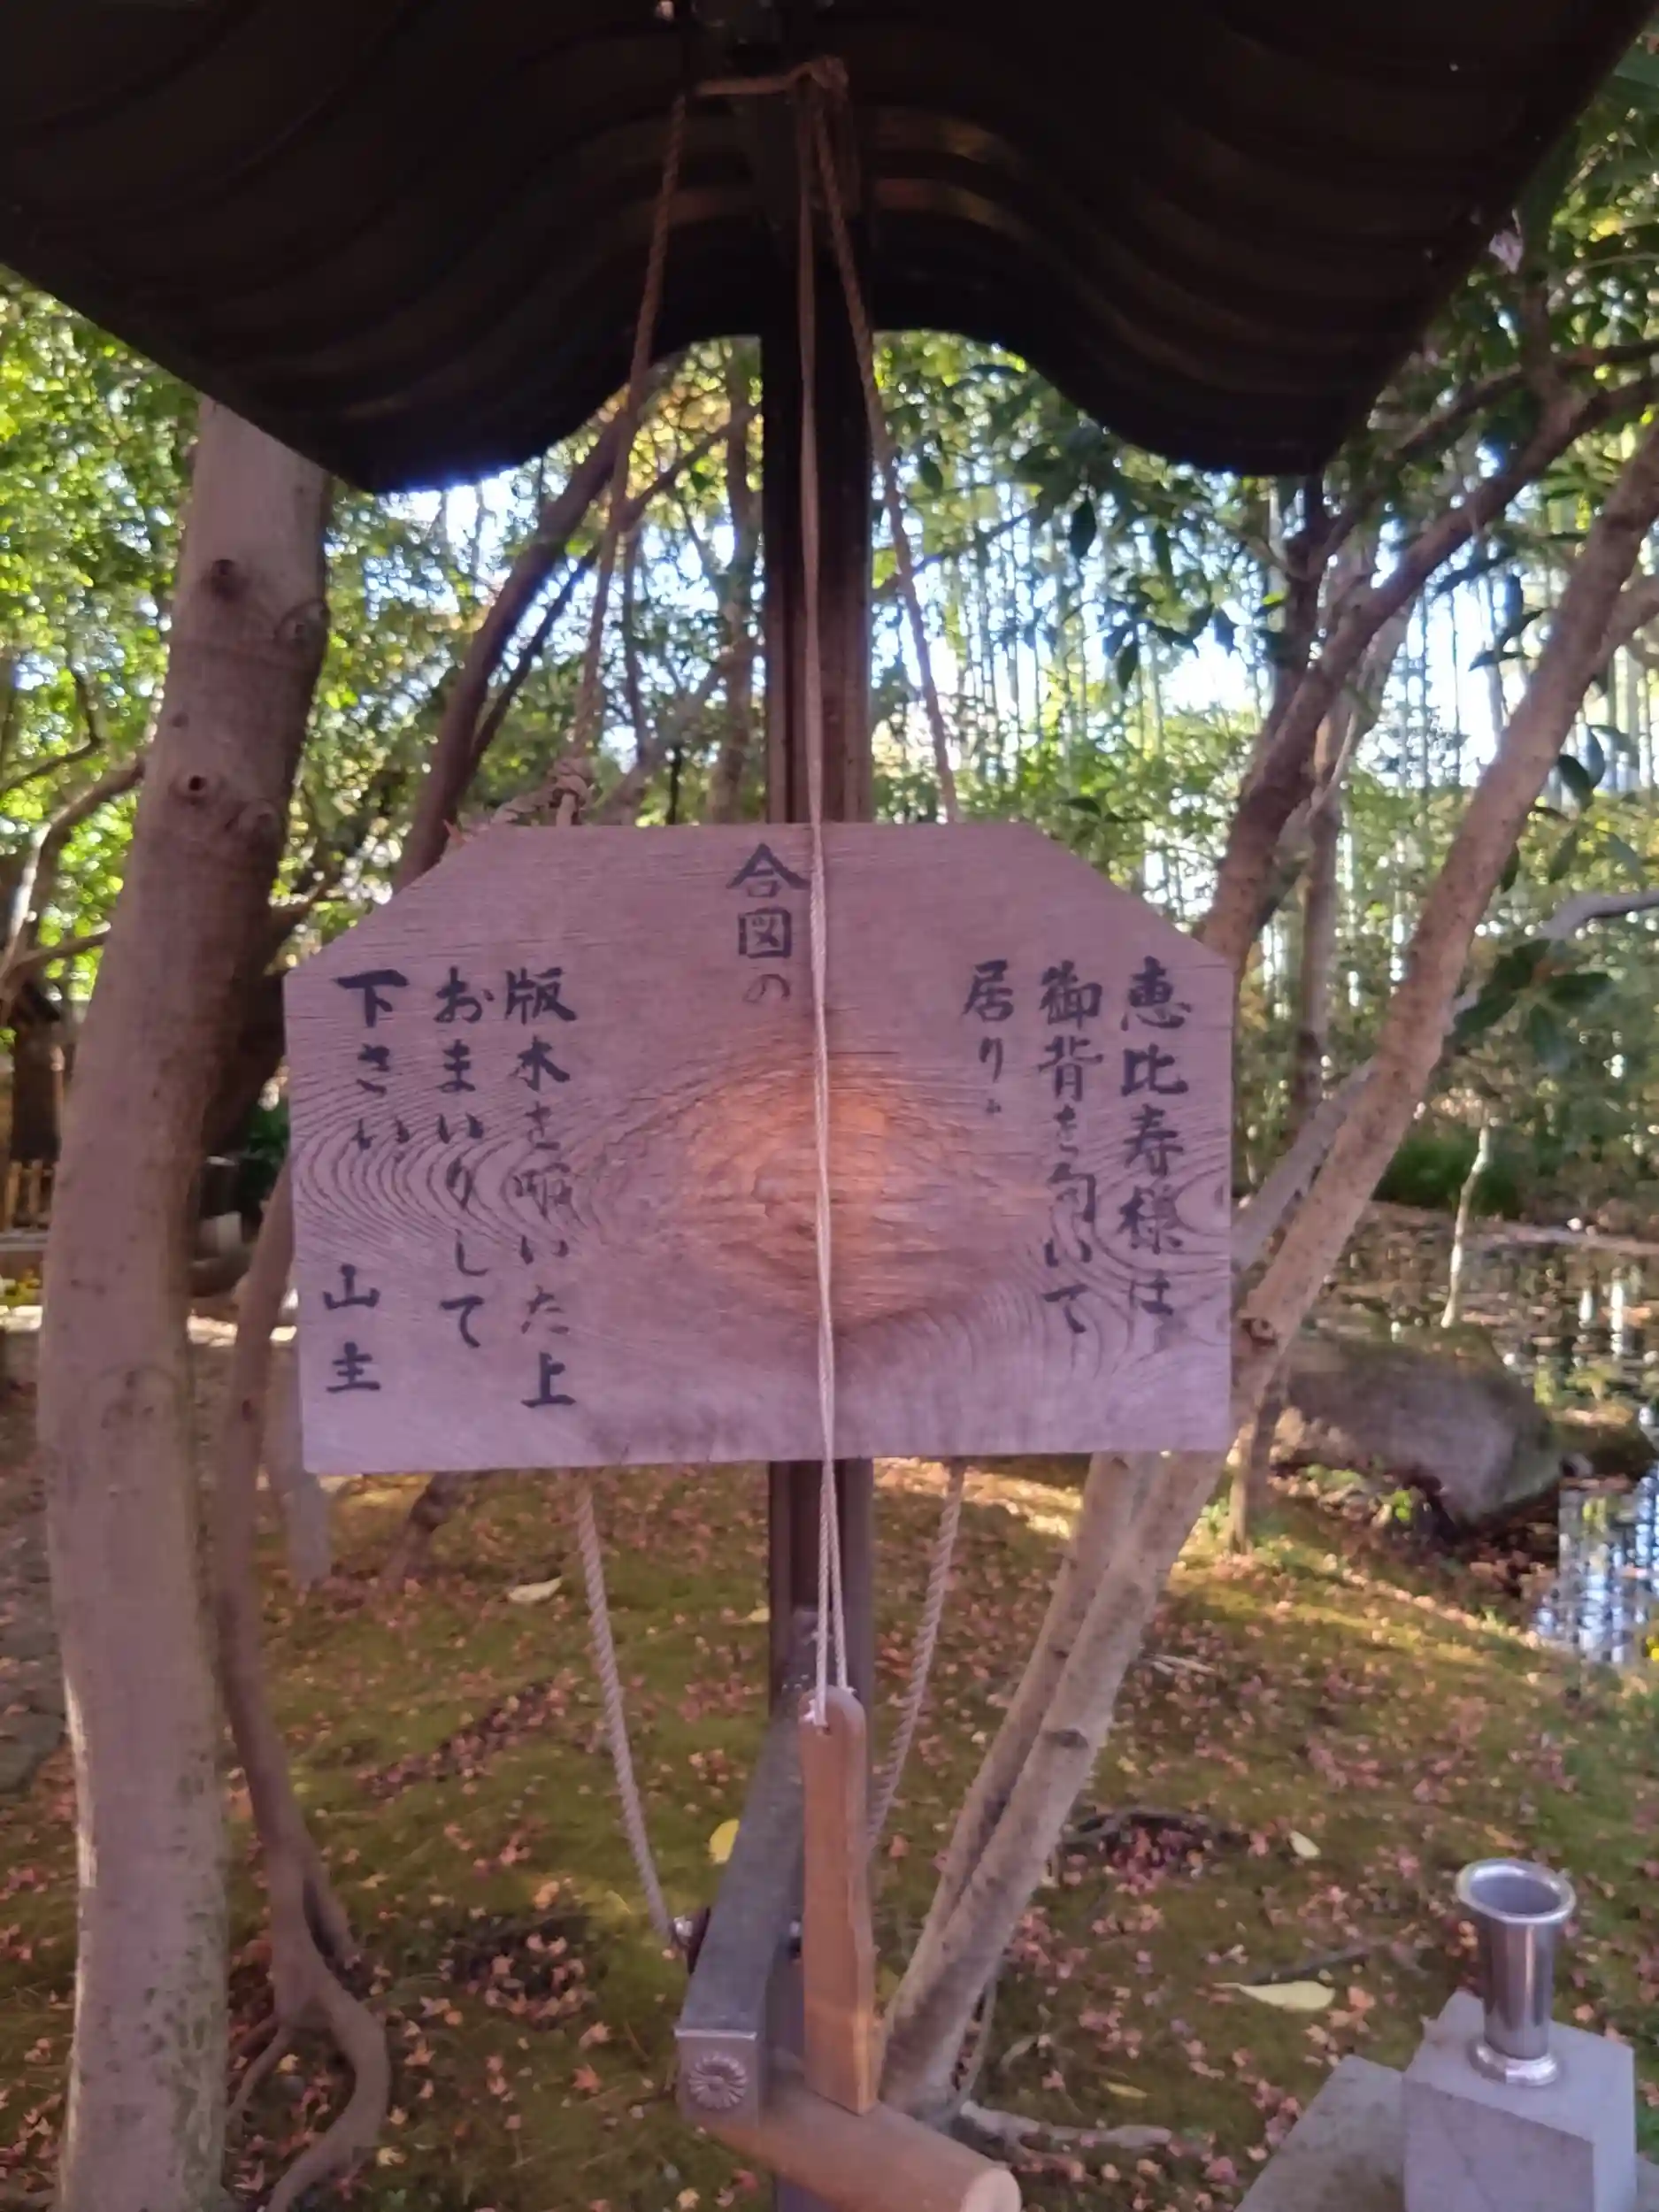 恵比寿様は
御背を向いて
居り〼
合図の
版木を叩いた上
おまいりして
下さい 山主